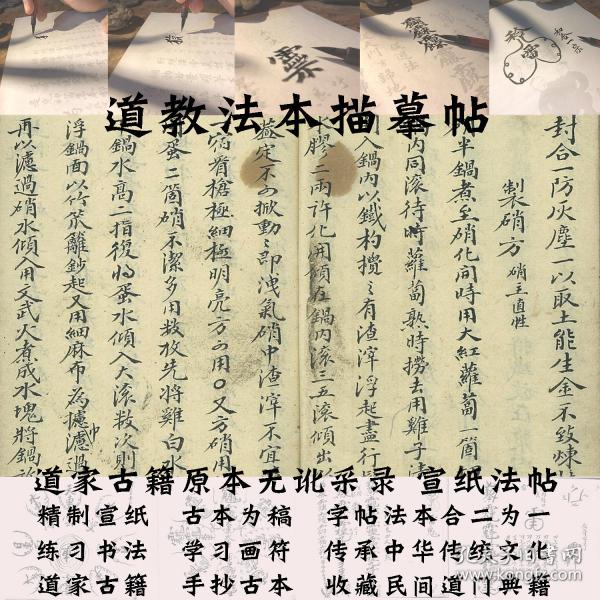 道教法本描摹帖
封合一防灰塵一以取土能生金不致煉
製硝方 硝主直性
半鍋煮至硝化間時用大紅蘿蔔一箇
內同滾待時蘿蔔熟時撈去用雞子清
入鍋內以鐵杓攪〻有渣滓浮起盡行
水膠二兩許化開傾在鍋內滾三五滾傾出以
蓋定不可掀動〻即洩氣硝中渣滓不宜
一宿看槍極細極明亮方可用○又方硝用
蛋二箇硝不潔多用数枚先將雞白水
鍋水高二指復將蛋水傾入大滾数次則
浮鍋面以竹笊籬鈔起又用細麻布為濾過
再以濾過硝水傾入用文武火煮成水塊將鍋
道家古籍原本无讹采录 宣纸法帖
精制宣纸 古本为稿 字帖法本合二为一
练习书法 学习画符 传承中华传统文化
道家古籍 手抄古本 收藏民间道门典籍
孔夫子旧书网
www.kongfz.com